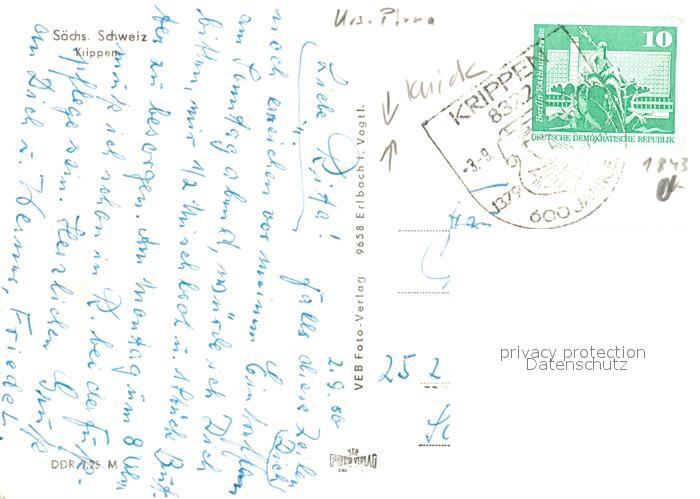 Sächs. Schweiz
Krippen
Urs. Pirna
Knick
KRIPPEN
8322
-3.-8.
1379
600 JAHRE
10
Berlin-Rathausstraße
DEUTSCHE DEMOKRATISCHE REPUBLIK
1843
2. 9. 80
Liebe Rita!
Falls diese Zeilen Dich
noch erreichen vor meinem Eintreffen
am Sonntag abend, würde ich Dich
bitten, mir 1/2 Mischbrot u. 1 Stück But-
ter zu besorgen. Am Montag um 8 Uhr
muß ich schon in D. bei der Fuß-
pflege sein. Herzlichen Gruß
an Dich u. Hanns, Friedel.
VEB Foto-Verlag 9658 Erlbach i. Vogtl.
252
FOTO VERLAG
DDR 1.25 M
privacy protection
Datenschutz